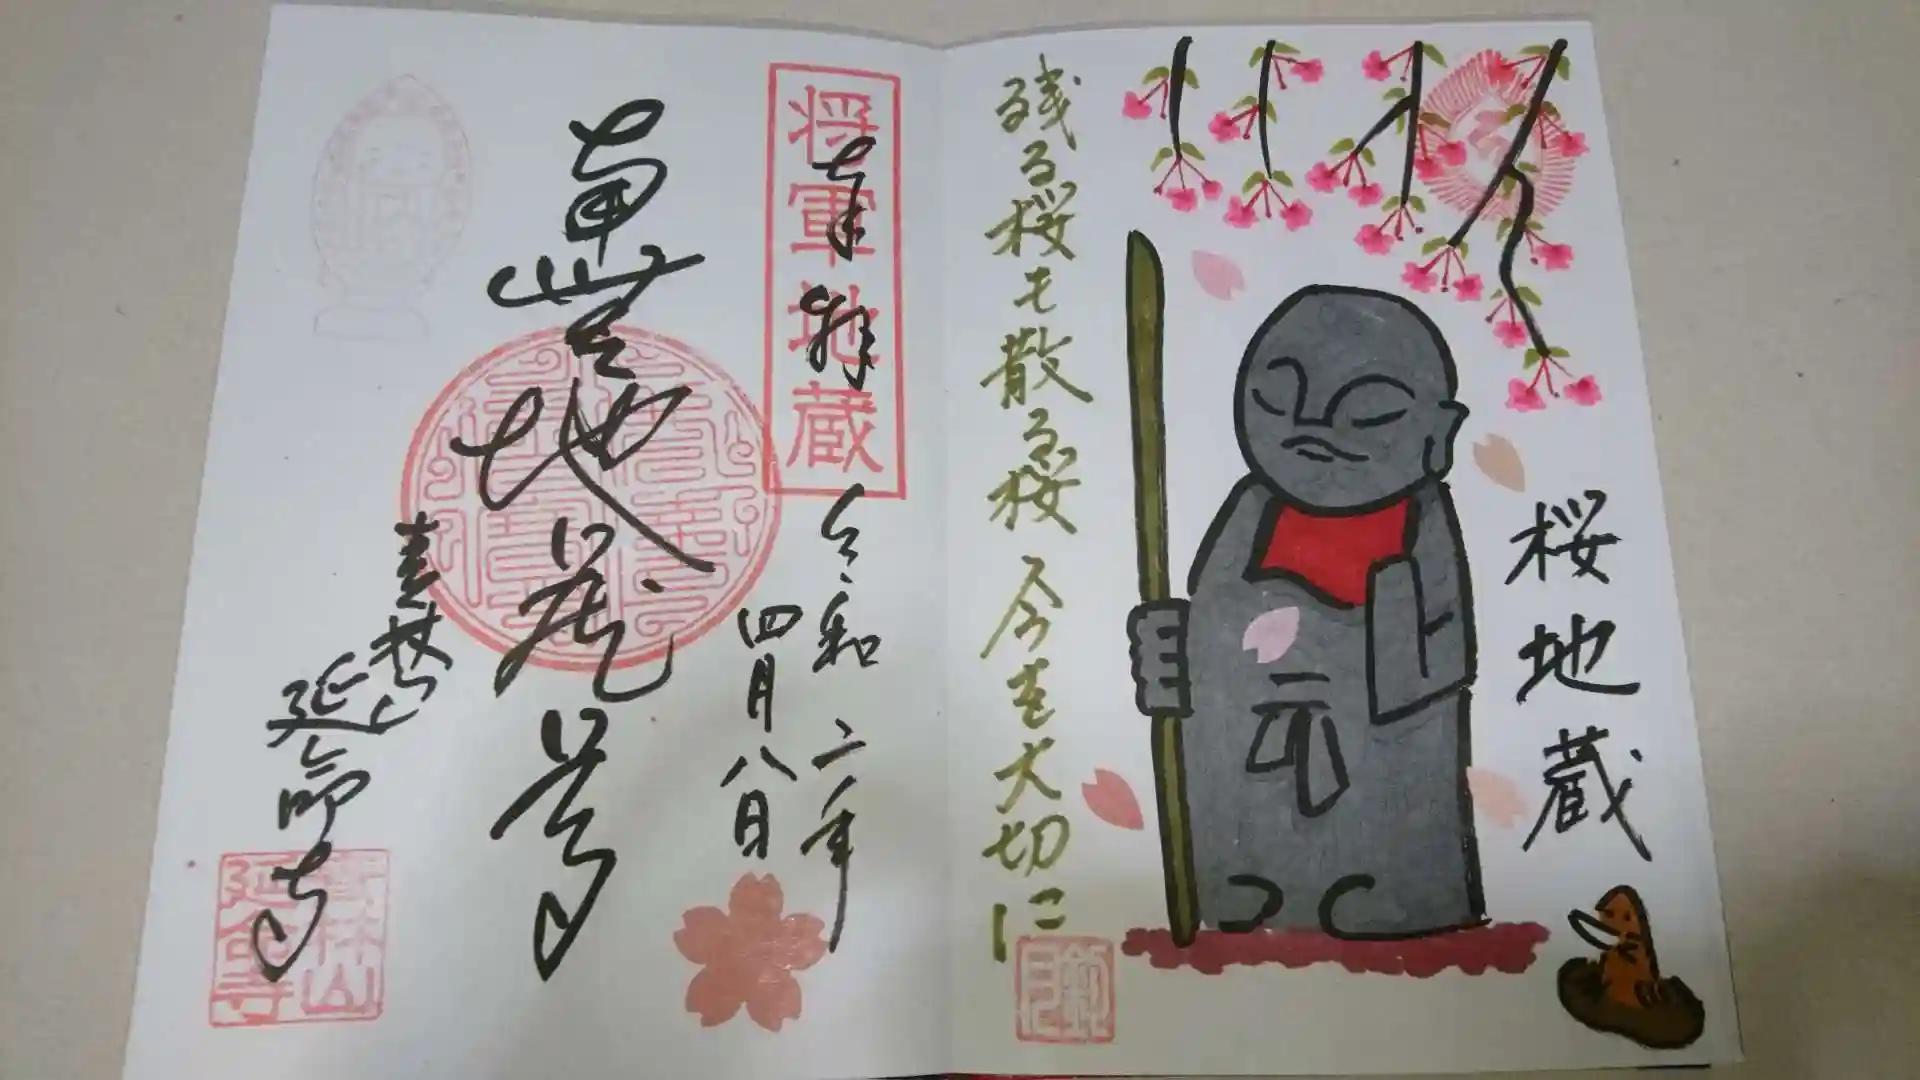 桜地蔵
残る桜も散る桜 今を大切に
将軍地蔵
奉拝
令和二年
四月八日
地蔵尊
延命寺
延命寺